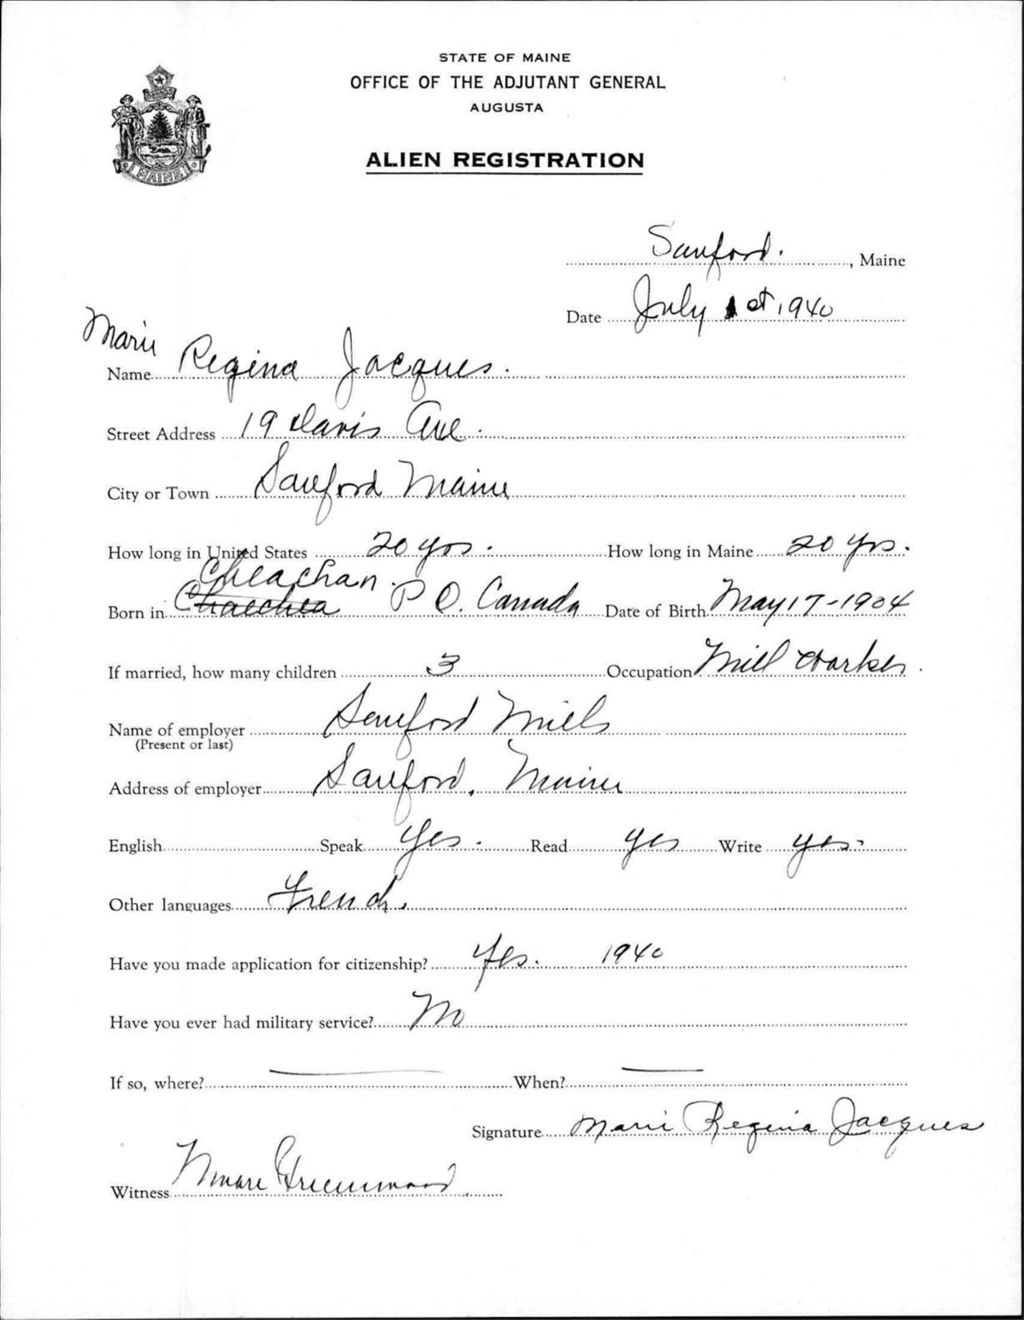 STATE OF MAINE
OFFICE OF THE ADJUTANT GENERAL
AUGUSTA
ALIEN REGISTRATION
MAINE
Sanford. , Maine
Date July 1st, 1940
Marie
Name Regina Jacques.
Street Address 19 Davis Ave.
City or Town Sanford Maine
How long in United States 20 yrs. How long in Maine 20 yrs.
Cheachan.
Born in Chaechea P Q. Canada Date of Birth May 17-1904
If married, how many children 3 Occupation Mill Worker.
Name of employer Sanford Mills
(Present or last)
Address of employer Sanford, Maine
English Speak Yes. Read yes Write yes.
Other languages French.
Have you made application for citizenship? Yes. 1940
Have you ever had military service? No
If so, where? When?
Signature Marie Regina Jacques
Witness Greenwood